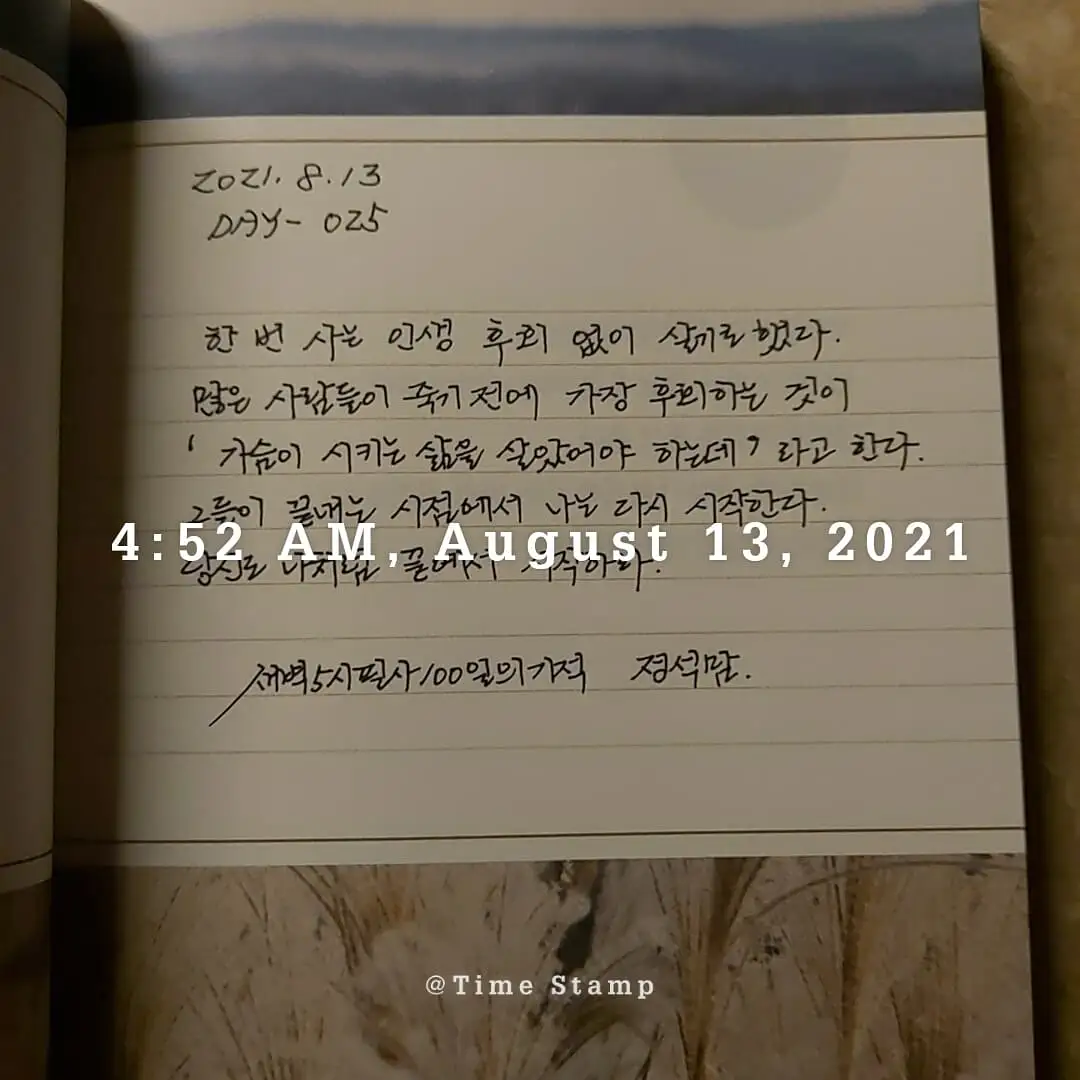 2021. 8. 13
DAY- 025
한 번 사는 인생 후회 없이 살기로 했다.
많은 사람들이 죽기 전에 가장 후회하는 것이
' 가슴이 시키는 삶을 살았어야 하는데' 라고 한다.
그들이 끝내는 시점에서 나는 다시 시작한다.
4:52 AM, August 13, 2021
당신도 나처럼 끝에서 시작하라.
새벽5시필사100일의기적 정석맘.
@Time Stamp